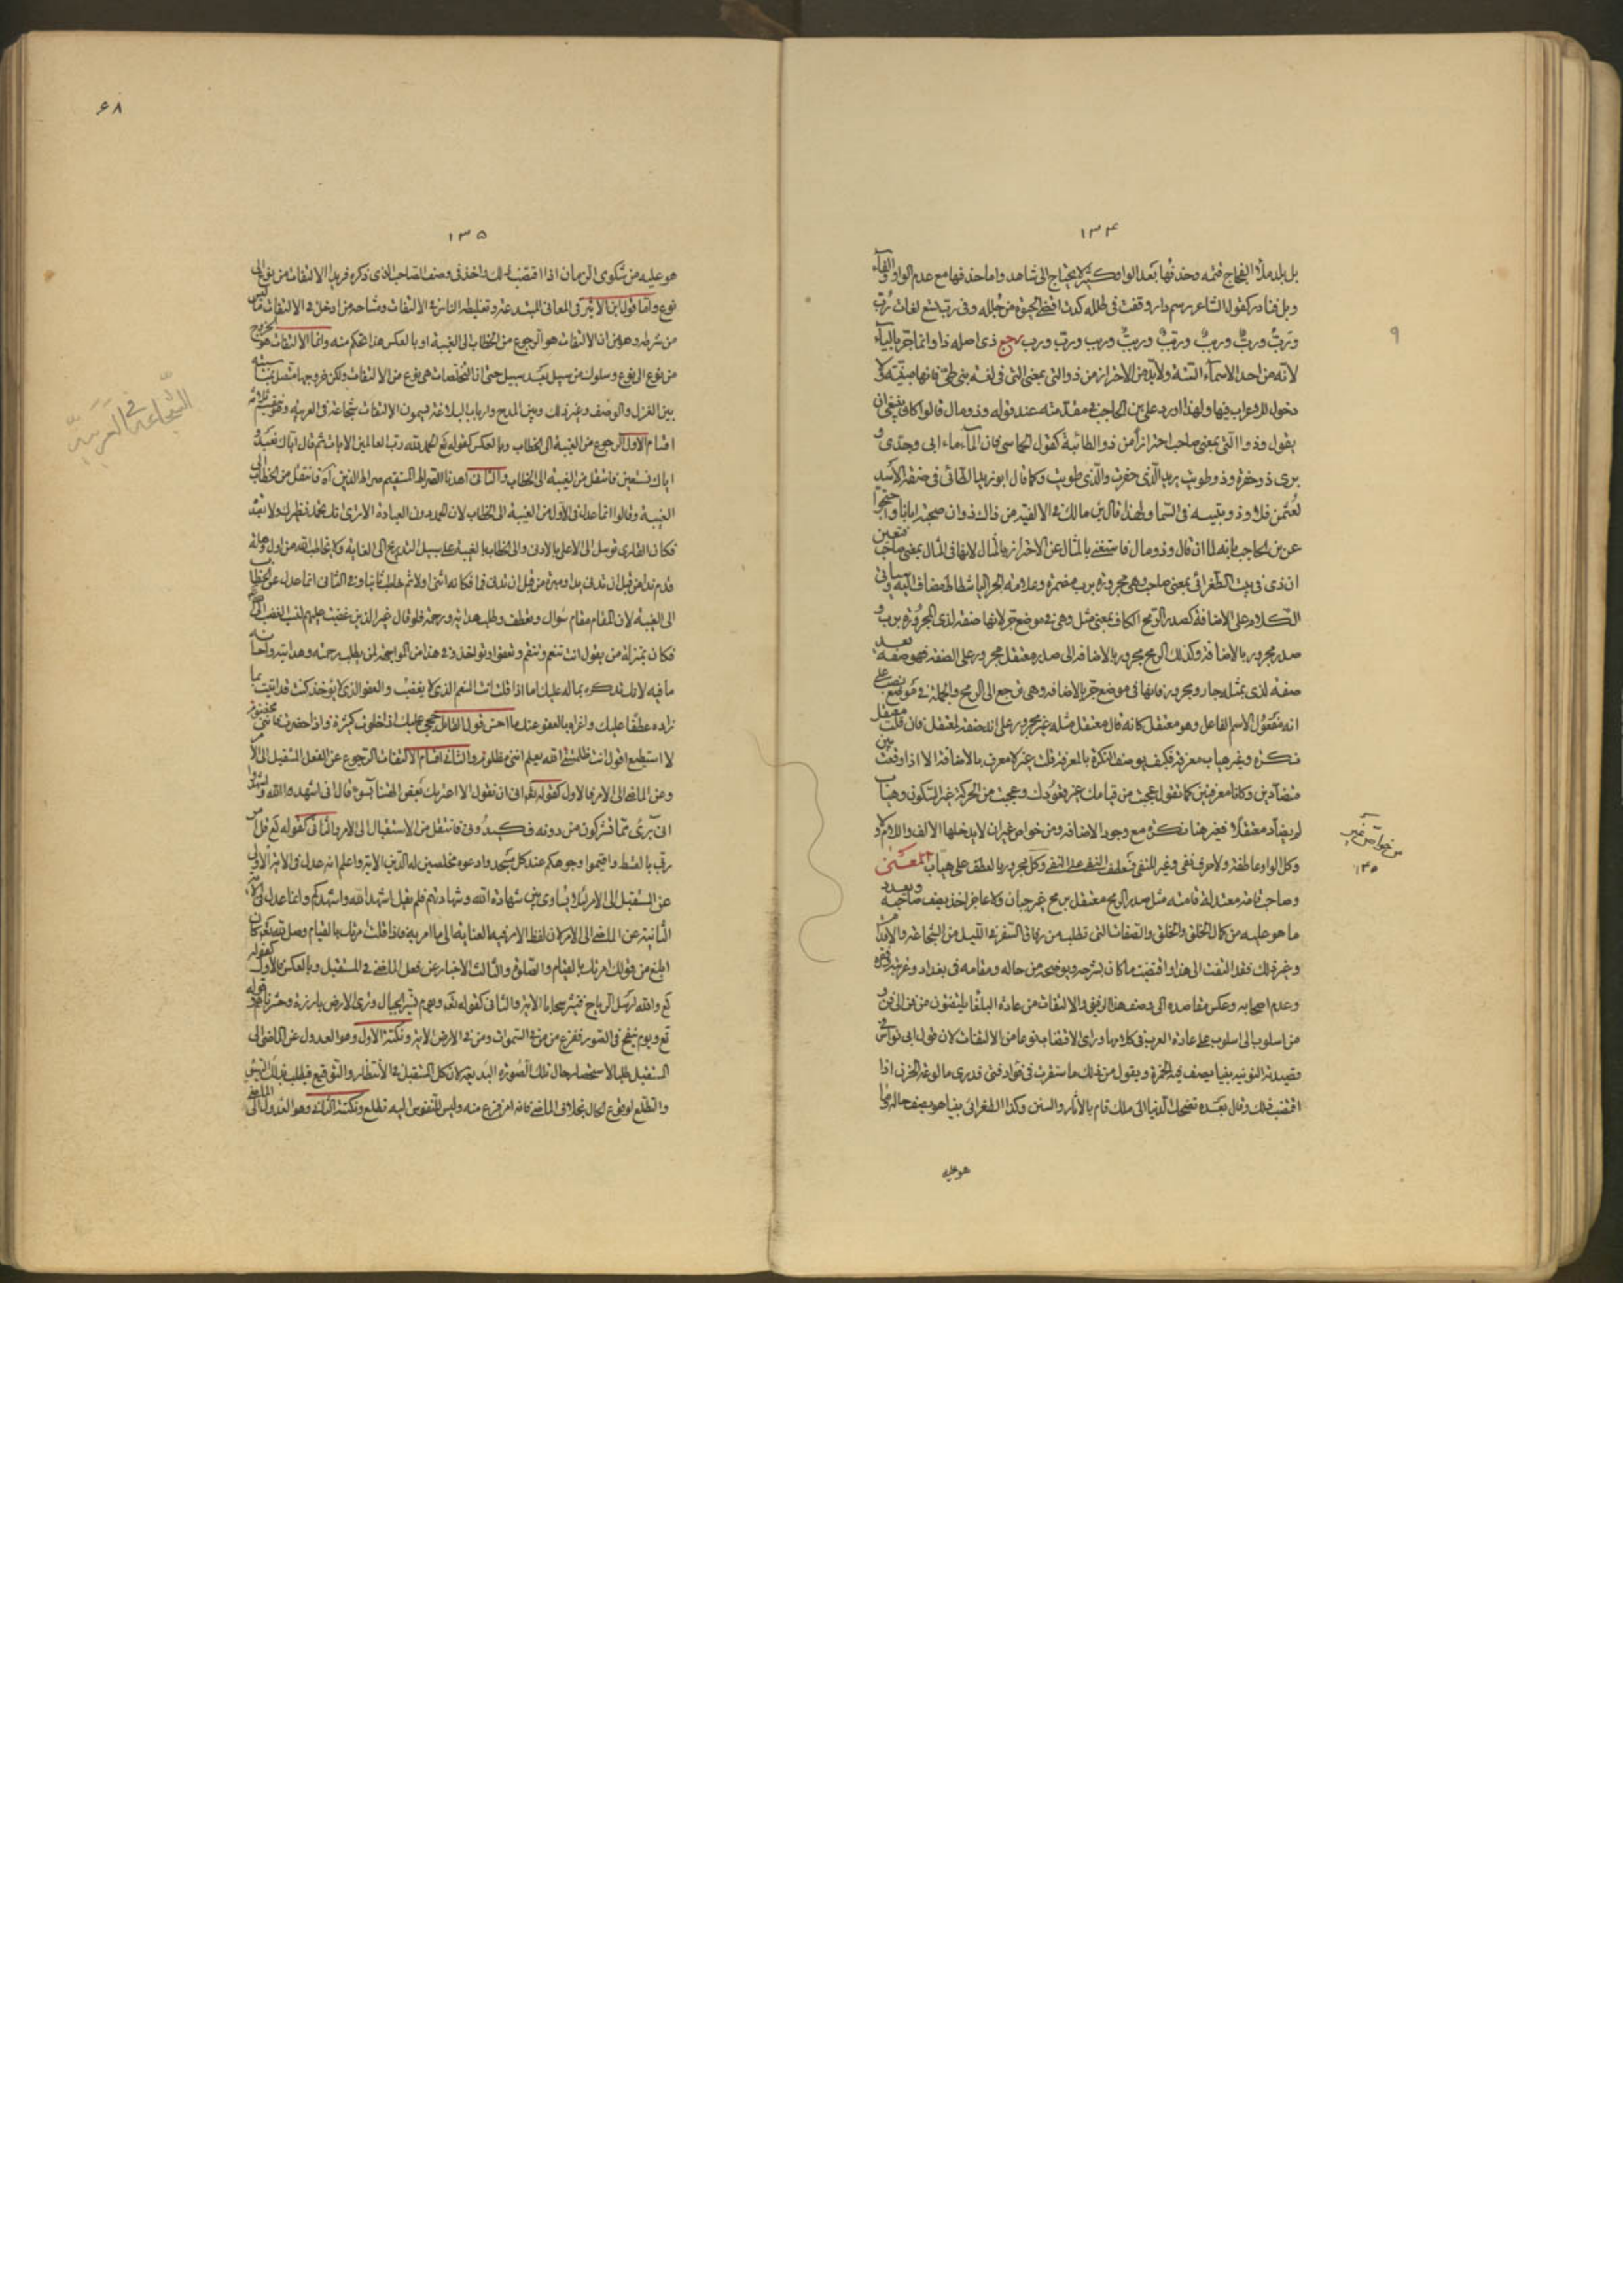 ١٣۴
بل بلد ملأ الفجاج قتمه وحذفها بعد الواو كثير لا يحتاج الى شاهد واما حذفها مع عدم الواو والفاء
وبل فنادر كقول الشاعر رسم دار وقفت فى طلله كدت اقضى الحيوة من جلله وفى رب تسع لغات رب
ورب ورب ورب ورب ورب ورب ورب ورب رجع ذى اصله ذا وانما جر بالياء
لانه من احد الاسماء الستة ولا بد من الاحتراز من ذو التى بمعنى الذى فى لغة بنى طى فانها مبنية لا
دخول للاعراب فيها ولهذا اورد على بن الحاجب فى مقدمته عند قوله وذو مال قالوا كان ينبغى ان
يقول وذو التى بمعنى صاحب احترازا من ذو الطائية كقول الحماسى فان الماء ماء ابى وجدى و
بيرى ذو حفرت وذو طويت يريد الذى حفرت والذى طويت وكما قال ابو زبيد الطائى فى صفة الاسد
ولهذا قال بن مالك فى الالفية من ذاك ذو ان صحبة ابانا
عن بن الحاجب بانه لما ان قال وذو مال فاستغنى بالمثال عن الاحتراز بالمثال لانها فى المثال بمعنى صاحب
ان ذى فى بيت الطغرائى بمعنى صاحب وهى مجرورة برب مضمرة وعلامة الجر الياء شطاط مضاف اليه وسياتى
الكلام على الاضافة كصدر الرمح الكاف بمعنى مثل وهى فى موضع جر لانها صفة لذى المجرورة برب و
صدر مجرور بالاضافة وكذلك الرمح مجرور بالاضافة الى صدر معتقل مجرور على الصفة فهو صفة بعد
صفة لذى بمثله جار ومجرور فانها فى موضع جر بالاضافة وهى ترجع الى الرمح والجملة فى موضع نصب على
انه مفعول لاسم الفاعل وهو معتقل كانه قال معتقل مثله غير مجرور على انه صفة لمعتقل فان قلت معتقل
نكرة وغير هياب معرفة فكيف يوصف النكرة بالمعرفة قلت غير لا تعرف بالاضافة الا اذا وقعت بين
متضادين وكانا معرفتين كما تقول عجبت من قيامك غير قعودك وعجبت من الحركة غير السكون وهياب
لم يضاد معتقلا فغير هنا نكرة مع وجود الاضافة ومن خواص غير ان لا يدخلها الالف واللام و
وكل الواو عاطفة ولا حرف نفى وغير للنفى فعطف النفى على النفى وكل مجرور بالعطف على هياب المعنى
وصاحب قامة معتدلة قامته مثل صدر الرمح معتقل برمح غير جبان ولا عاجز اخذ يصف صاحبه وبعدد
ما هو عليه من كمال الخلق والخلق والصفات التى تطلب من رفاق السفر فى الليل من الشجاعة والاقدام
وغير ذلك فقد التفت الى هذا واقتضب ما كان يشرحه ويوضحه من حاله ومقامه فى بغداد وغربته وفقره
وعدم اصحابه وعكس مقاصده الى وصف هذا الرفيق والالتفات من عادة البلغا يلتفتون من فن الى فن و
من اسلوب الى اسلوب على عادة العرب فى كلامها وراى الاقتضاب نوعا من الالتفات لان قول ابى نواس فى
قصيدته النونية بينا يصف فيه الخمرة ويقول من ذلك ما استقرت فى فؤاد فتى فدرى ما لوعة الحزن اذا
اقتضب ذلك وقال بعده تضحك الدنيا الى ملك قام بالآثار والسنن وكذا الطغرائى بينا هو يصف حاله وما
هو عليه
٩
من خواص غير
١٣۵
۶٨
١٣۵
هو عليه من شكوى الزمان اذا اقتضب ذلك واخذ فى وصف الصاحب الذى ذكره فربدا الالتفات من نوع الى
نوع واما قول ابن الاثير فى المعانى المبتدعة وتغليطه الناس فى الالتفات ومشاحه من ادخل فى الالتفات ما ليس
من شرطه وهو من ان الالتفات هو الرجوع من الخطاب الى الغيبة او بالعكس هذا تحكم منه وانما الالتفات هو الخروج
من نوع الى نوع وسلوك من سبيل بعد سبيل حتى ان التخلصات هى نوع من الالتفات ولكن خروجها متصل
بين الغزل والوصف وغير ذلك وبين المدح وارباب البلاغة يسمون الالتفات شجاعة فى العربية وهو ينقسم ثلاثة
اقسام الاول الرجوع من الغيبة الى الخطاب وبالعكس كقوله تع الحمد لله رب العالمين الايات ثم قال اياك نعبد و
اياك نستعين فانتقل من الغيبة الى الخطاب والثانى اهدنا الصراط المستقيم صراط الذين آه فانتقل من الخطاب الى
الغيبة وقالوا انما عدل فى الاول من الغيبة الى الخطاب لان الحمد دون العبادة الا ترى انك تحمد نظيرك ولا تعبد
الى الغيبة لان المقام مقام سؤال وتعطف وطلب هداية ورحمة فلو قال غير الذين غضبت عليهم
فكان بمنزلة من يقول انت تنعم وتنتقم وتعفو او تواخذ وفى هذا من
ما فيه لانك تذكره بماله عليك اما اذا قلت انت المنعم الذى لا يغضب والعفو الذى لا يؤخذ كنت قد اتيت بما
زاده عطفا عليك واغراه بالعفو عنك ما احسن قول القائل حججى عليك اذا خلوت كثيرة واذا حضرت فاننى مخصوم
لا استطيع اقول انت ظلمتنى الله يعلم اننى مظلوم والثانى اقسام الالتفات الرجوع عن الفعل المستقبل الى الامر
وعن الماضى الى الامر فالاول كقوله تع ان نقول الا اعتريك بعض الهتنا بسوء قال انى اشهد الله واشهدوا
انى برئ مما تشركون من دونه فكيدونى فانتقل من الاستقبال الى الامر والثانى كقوله تع قل امر
ربى بالقسط واقيموا وجوهكم عند كل مسجد وادعوه مخلصين له الدين الاية واعلم انه عدل فى الاية الاولى
عن المستقبل الى الامر لئلا يساوى بين شهادة الله وشهادتهم فلم يقل اشهد الله واشهدكم وانما عدل فى
الثانية عن الماضى الى الامر لان لفظ الامر فيه العناية الى ما امر به فاذا قلت امرتك بالقيام وصل
ابلغ من قولك امرتك بالقيام والصلوة والثالث الاخبار عن فعل الماضى فى المستقبل وبالعكس فالاول كقوله
تع والله ارسل الرياح فتثير سحابا الاية والثانى كقوله تع ويوم نسير الجبال وترى الارض بارزة وحشرناهم قوله
تع ويوم ينفخ فى الصور ففزع من فى السموات ومن فى الارض الاية ونكتة الاول وهو العدول عن الماضى الى
المستقبل طلبا لاستحضار حال تلك الصورة البديعة لان كل المستقبل فى الانتظار والتوقيع
والتطلع لوقوع الحال بخلاف الماضى فانه امر فرغ منه وليس للنفوس اليه تطلع ونكتة الثانية وهو العدول الى الماضى
الشجاعة فى العربية